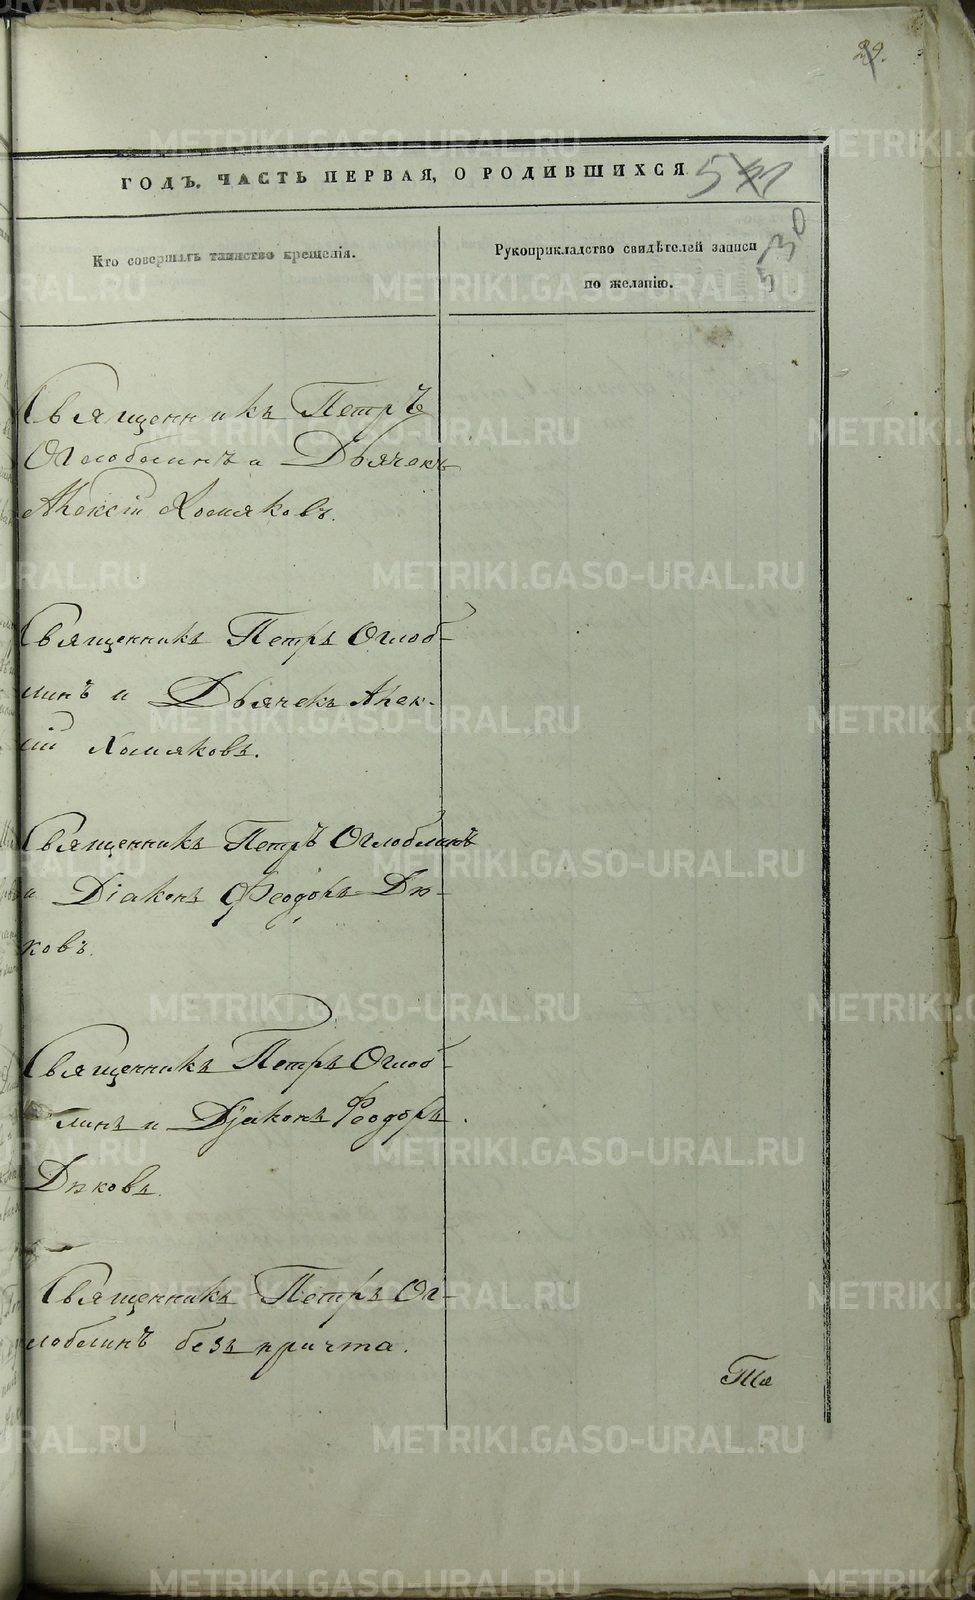 29.
ГОДЪ. ЧАСТЬ ПЕРВАЯ, О РОДИВШИХСЯ
530
Кто совершалъ таинство крещенія.
Рукоприкладство свидѣтелей записи
по желанію.
Священникъ Петръ
Оглоблинъ и Дьячекъ
Алексій Хомяковъ.
Священникъ Петръ Оглоб-
линъ и Дьячекъ Алек-
сій Хомяковъ.
Священникъ Петръ Оглоблинъ
и Діаконъ Феодоръ Дю-
ковъ.
Священникъ Петръ Оглоб-
линъ и Діаконъ Феодоръ
Дюковъ.
Священникъ Петръ Ог-
лоблинъ безъ причта.
METRIKI.GASO-URAL.RU